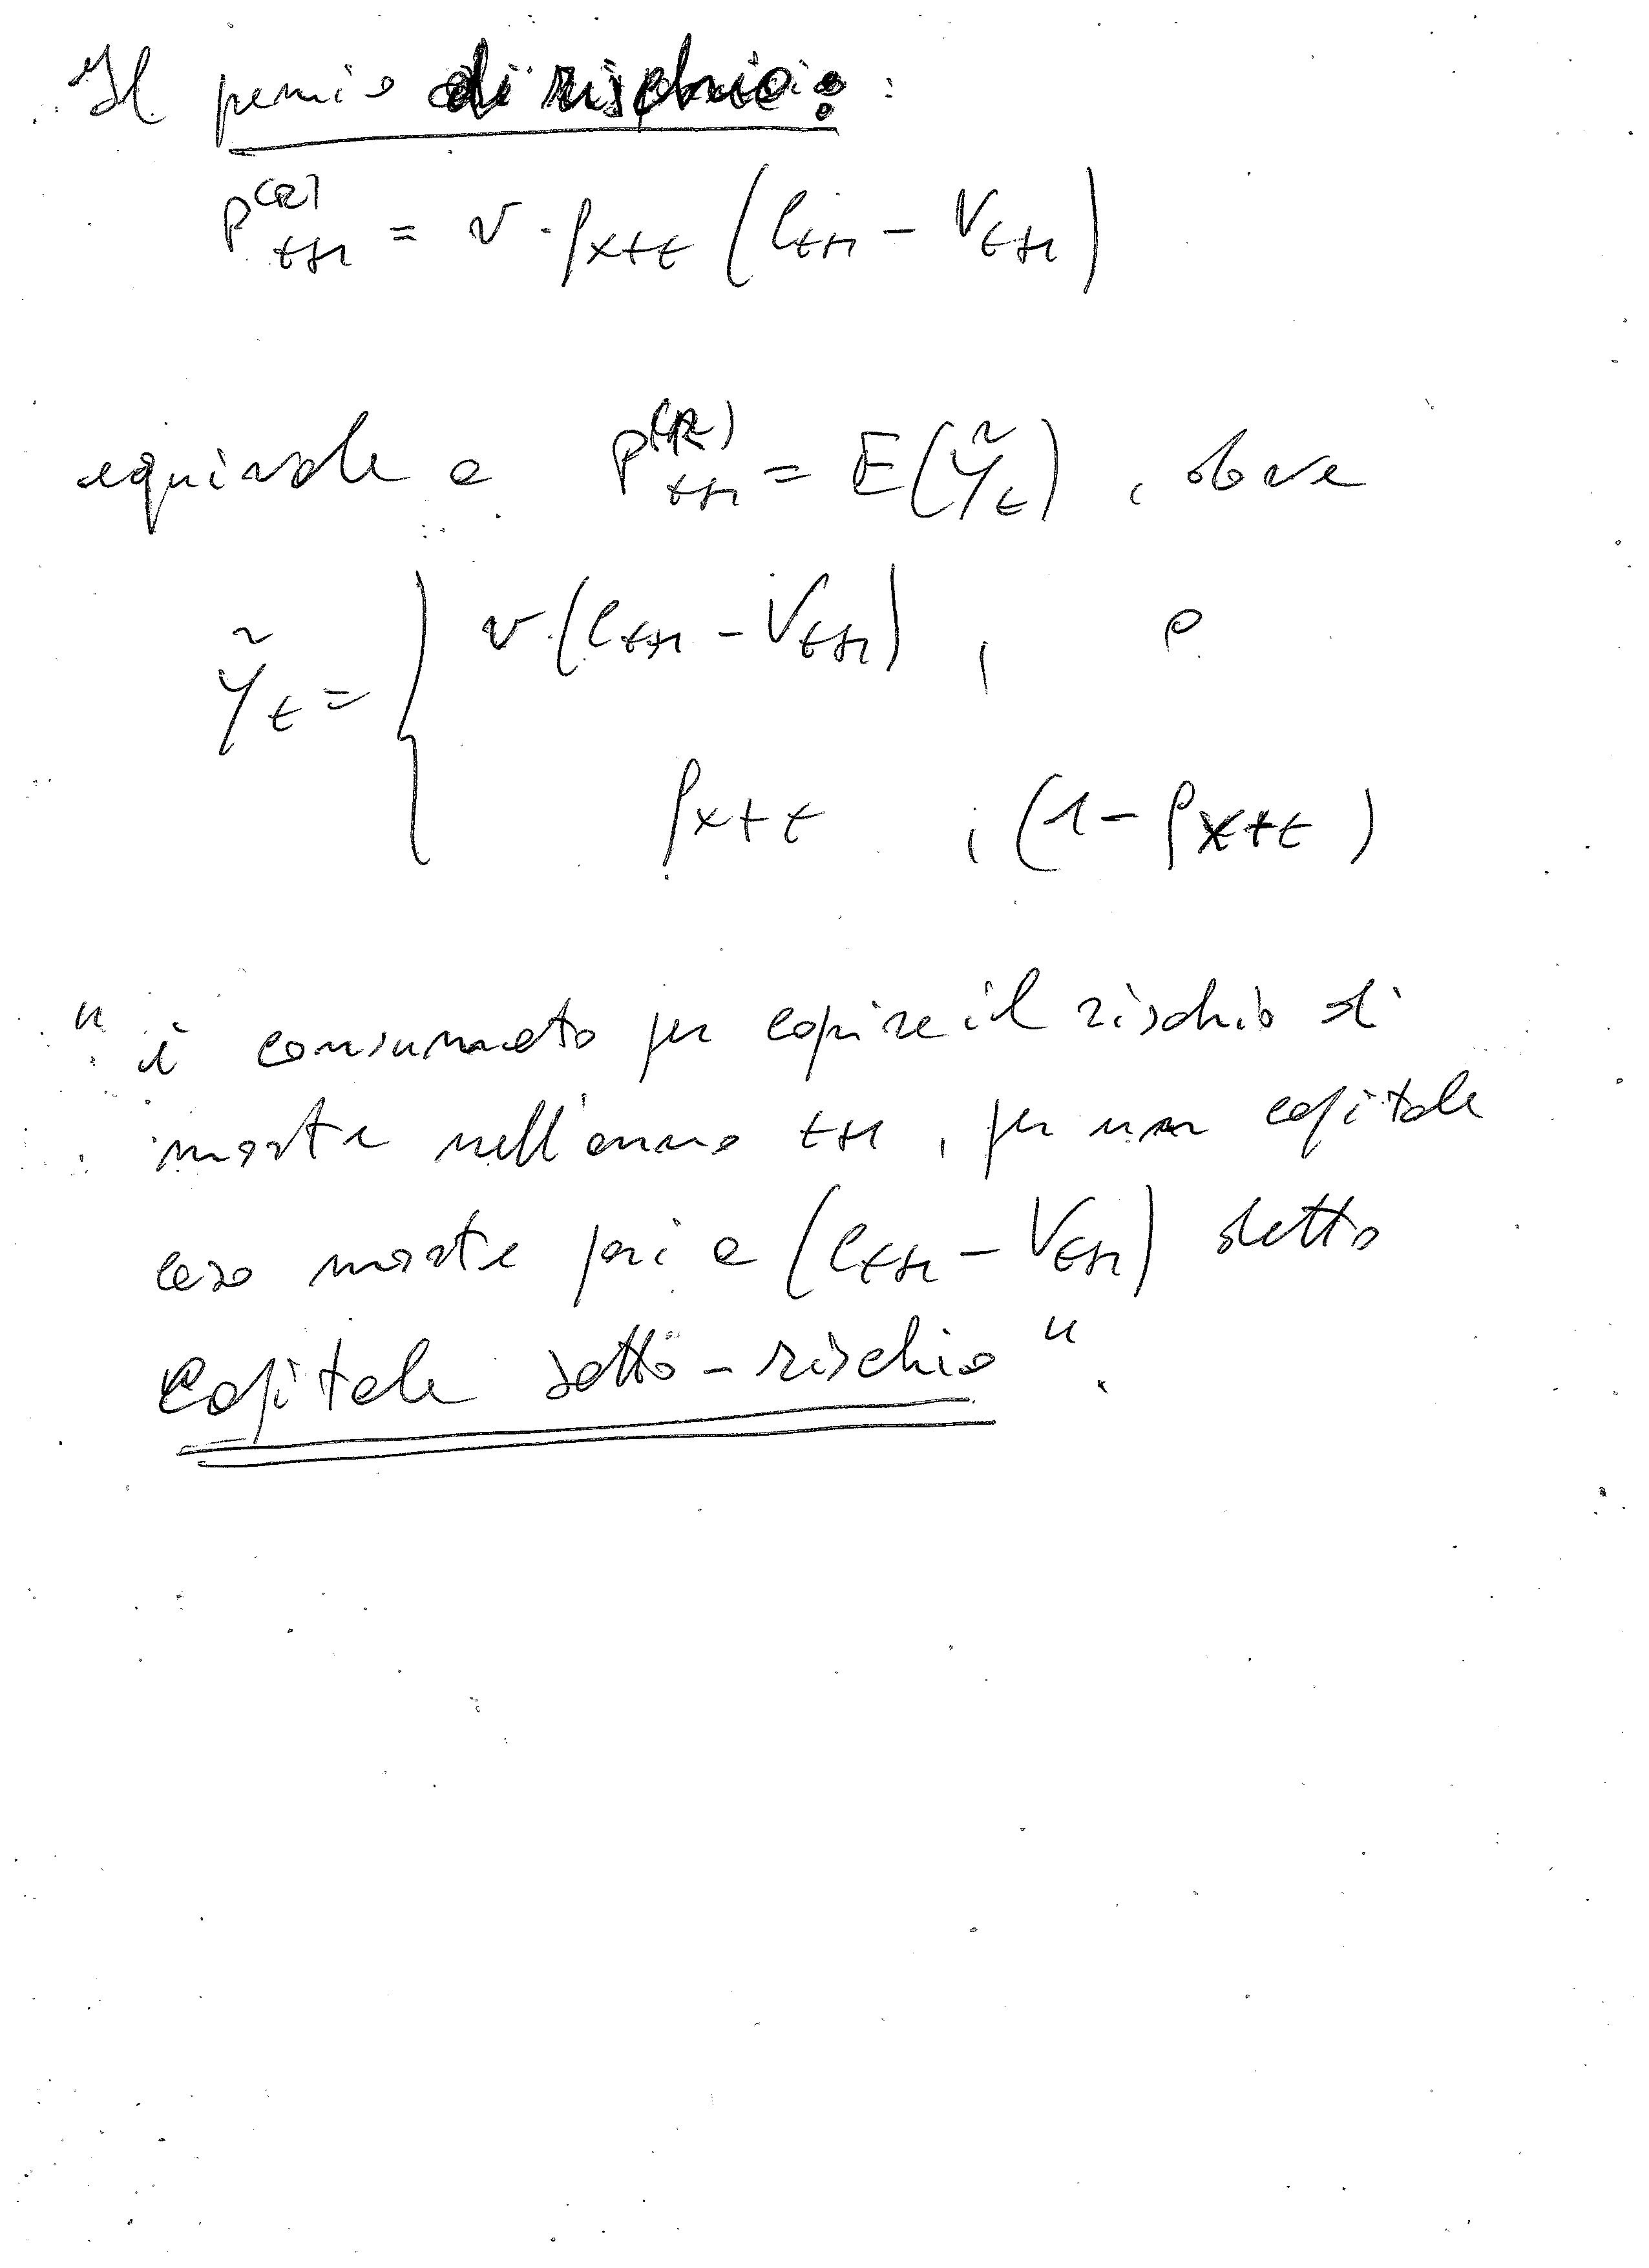 Il premio di rischio:
P^(R)_t+1 = v · q_x+t (C_t+1 − V_t+1)
equivale a P^(R)_t+1 = E(Ỹ_t), dove
Ỹ_t = { v·(C_t+1 − V_t+1), 0
q_x+t , (1 − q_x+t)
" è consumato per coprire il rischio di
morte nell'anno t+1, per un capitale
caso morte pari a (C_t+1 − V_t+1) detto
Capitale sotto-rischio ".